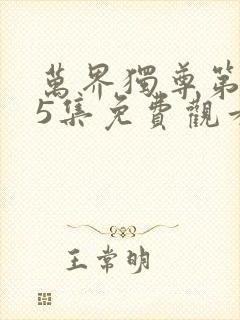 萬界獨尊第
5集免費觀看
王常明